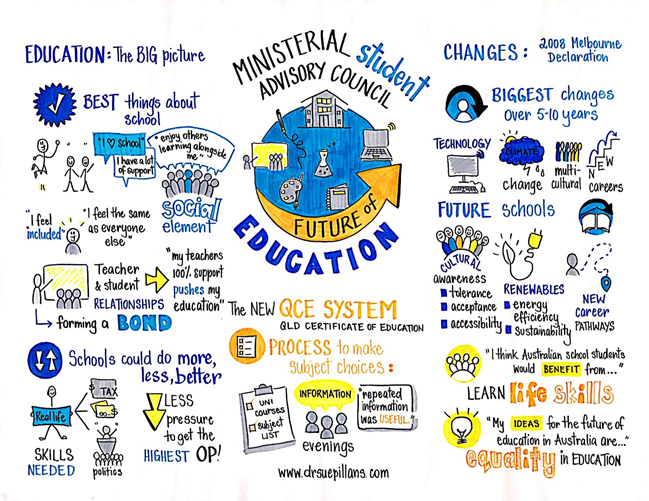 EDUCATION: The BIG picture
BEST things about
school
"I ♥ school"
I have a lot
of support
"enjoy others
learning alongside
me"
social
element
"I feel
included"
"I feel the same
as everyone
else"
Teacher
& student
RELATIONSHIPS
forming a BOND
"my teachers
100% support
pushes my
education"
Schools could do more,
less, better
Real life
TAX
SKILLS
NEEDED
politics
LESS
pressure
to get the
HIGHEST OP!
MINISTERIAL student
ADVISORY COUNCIL
FUTURE of
EDUCATION
The NEW QCE SYSTEM
QLD CERTIFICATE OF EDUCATION
PROCESS to make
subject choices:
UNI
courses
subject
LIST
INFORMATION
evenings
"repeated
information
was USEFUL"
www.drsuepillans.com
CHANGES: 2008 Melbourne
Declaration
BIGGEST changes
over 5-10 years
TECHNOLOGY
CLIMATE
change
multi-
cultural
NEW
careers
FUTURE schools
CULTURAL
awareness
tolerance
acceptance
accessibility
RENEWABLES
energy
efficiency
sustainability
NEW
career
PATHWAYS
"I think Australian school students
would BENEFIT from..."
LEARN life skills
"My IDEAS for the future of
education in Australia are..."
equality in EDUCATION